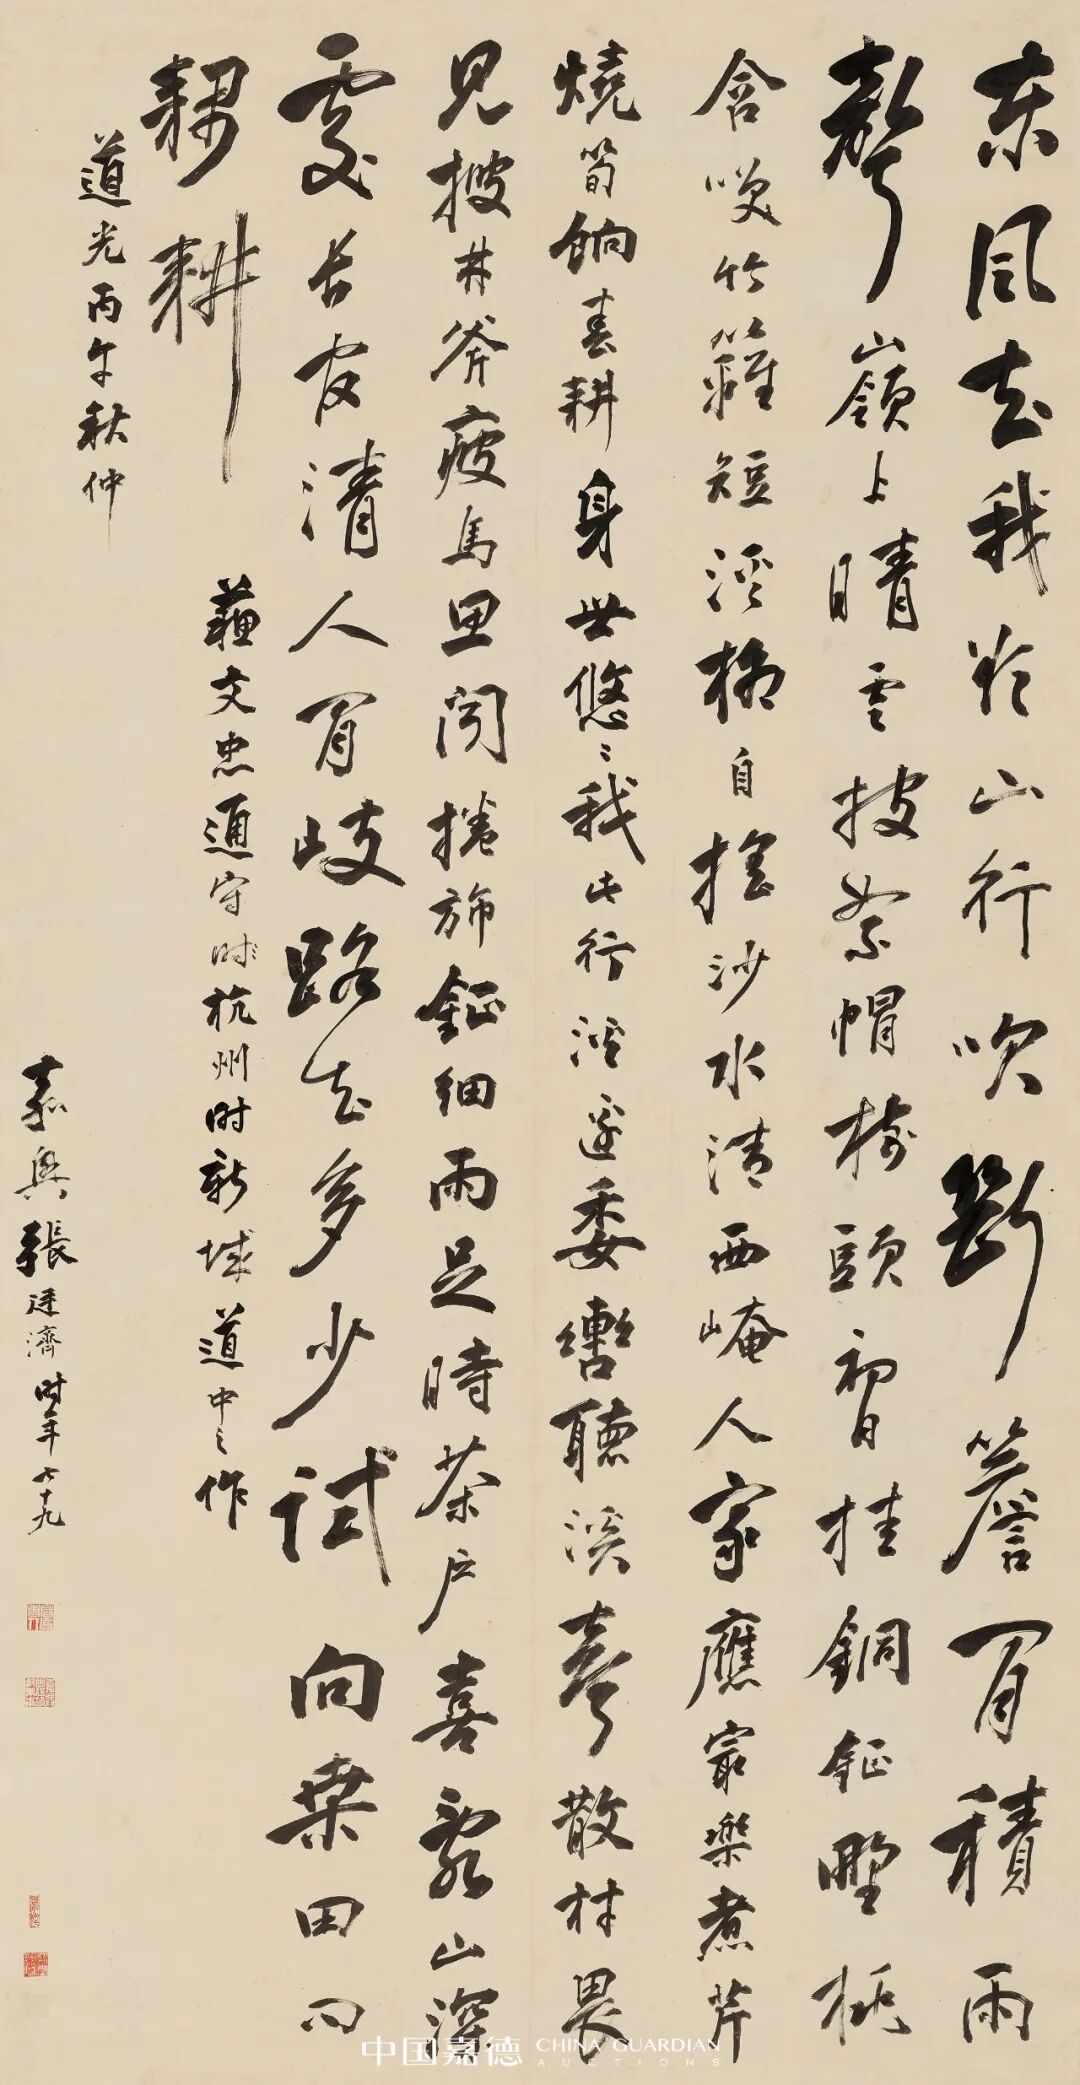 東風知我欲山行吹斷簷間積雨
聲嶺上晴雲披絮帽樹頭初日挂銅鉦野桃
含笑竹籬短溪柳自搖沙水清西崦人家應最樂煮芹
燒筍餉春耕身世悠〻我此行溪邊委轡聽溪聲散材畏
見搜林斧疲馬思聞捲旆鉦細雨足時茶戶喜亂山深
處長官清人間岐路知多少試向桑田問
耦耕
蘇文忠通守時杭州時新城道中之作
道光丙午秋仲
嘉興張廷濟時年七十九
中国嘉德 CHINA GUARDIAN AUCTIONS